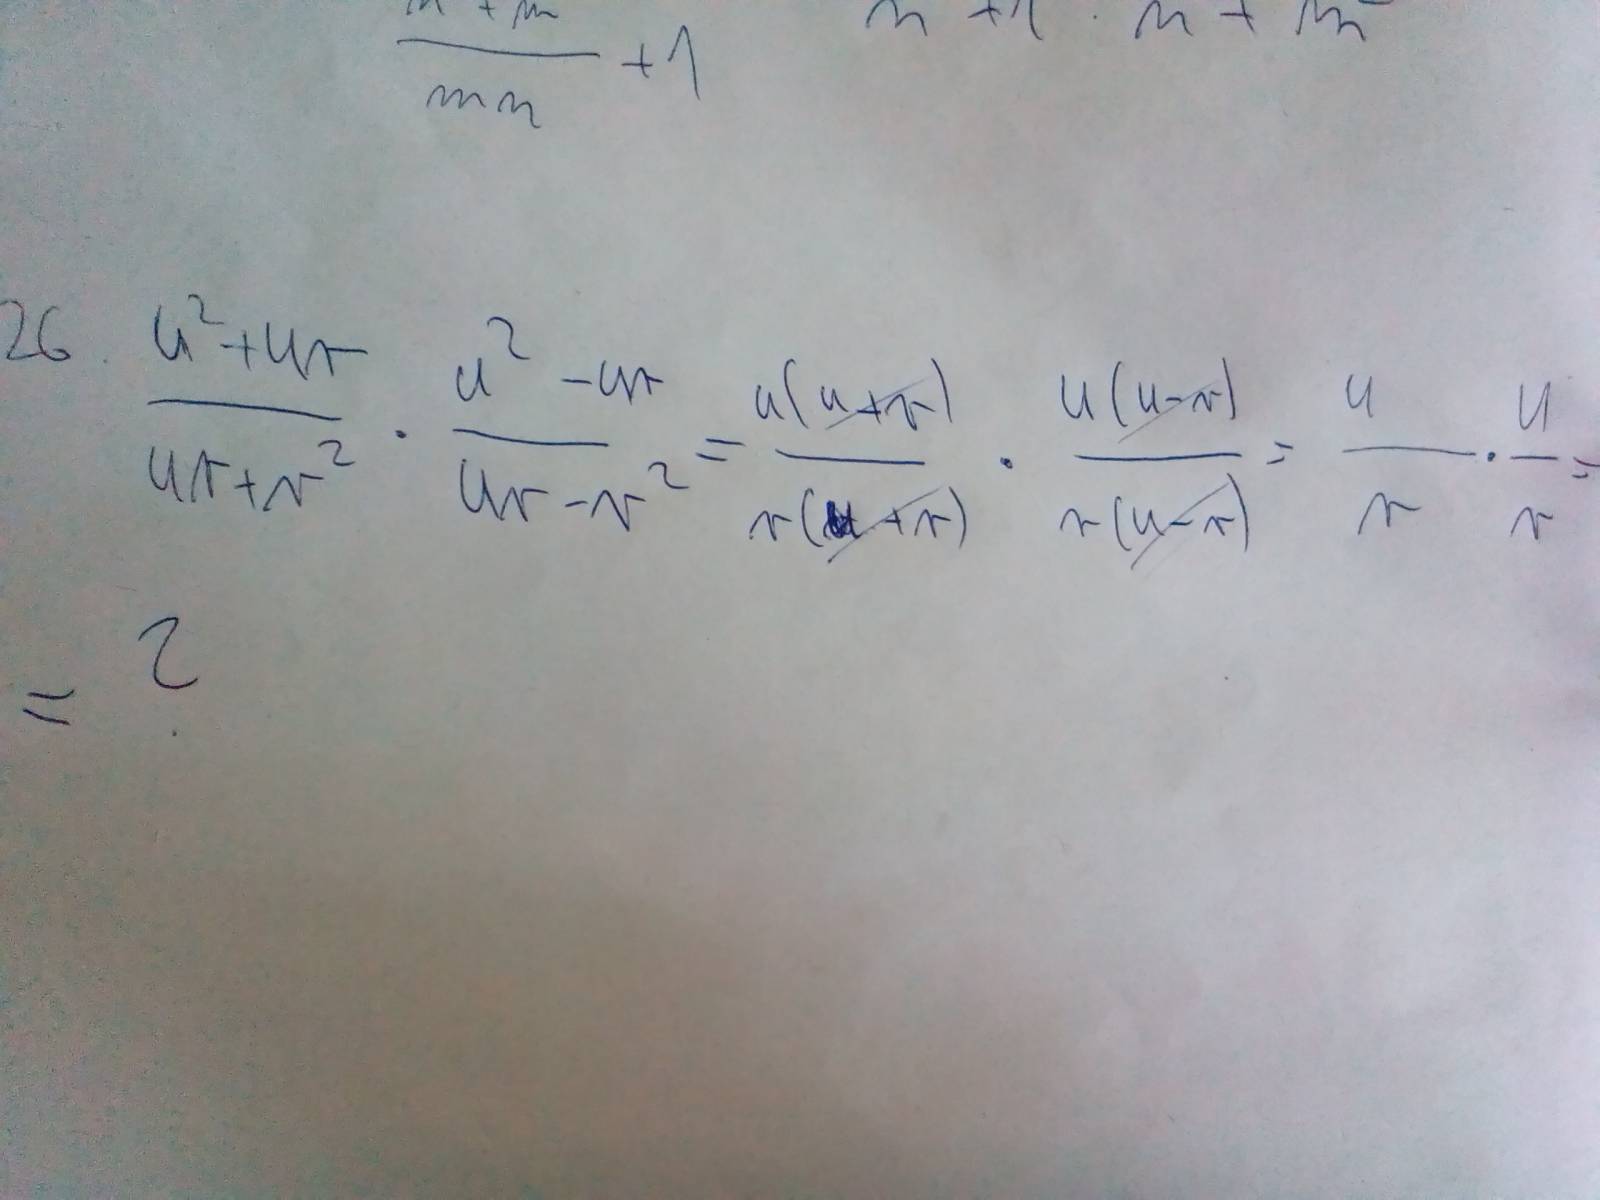 mn + 1
26. (u² + uv)/(uv + v²) · (u² - uv)/(uv - v²) = u(u + v)/v(u + v) · u(u - v)/v(u - v) = u/v · u/v =
= ?